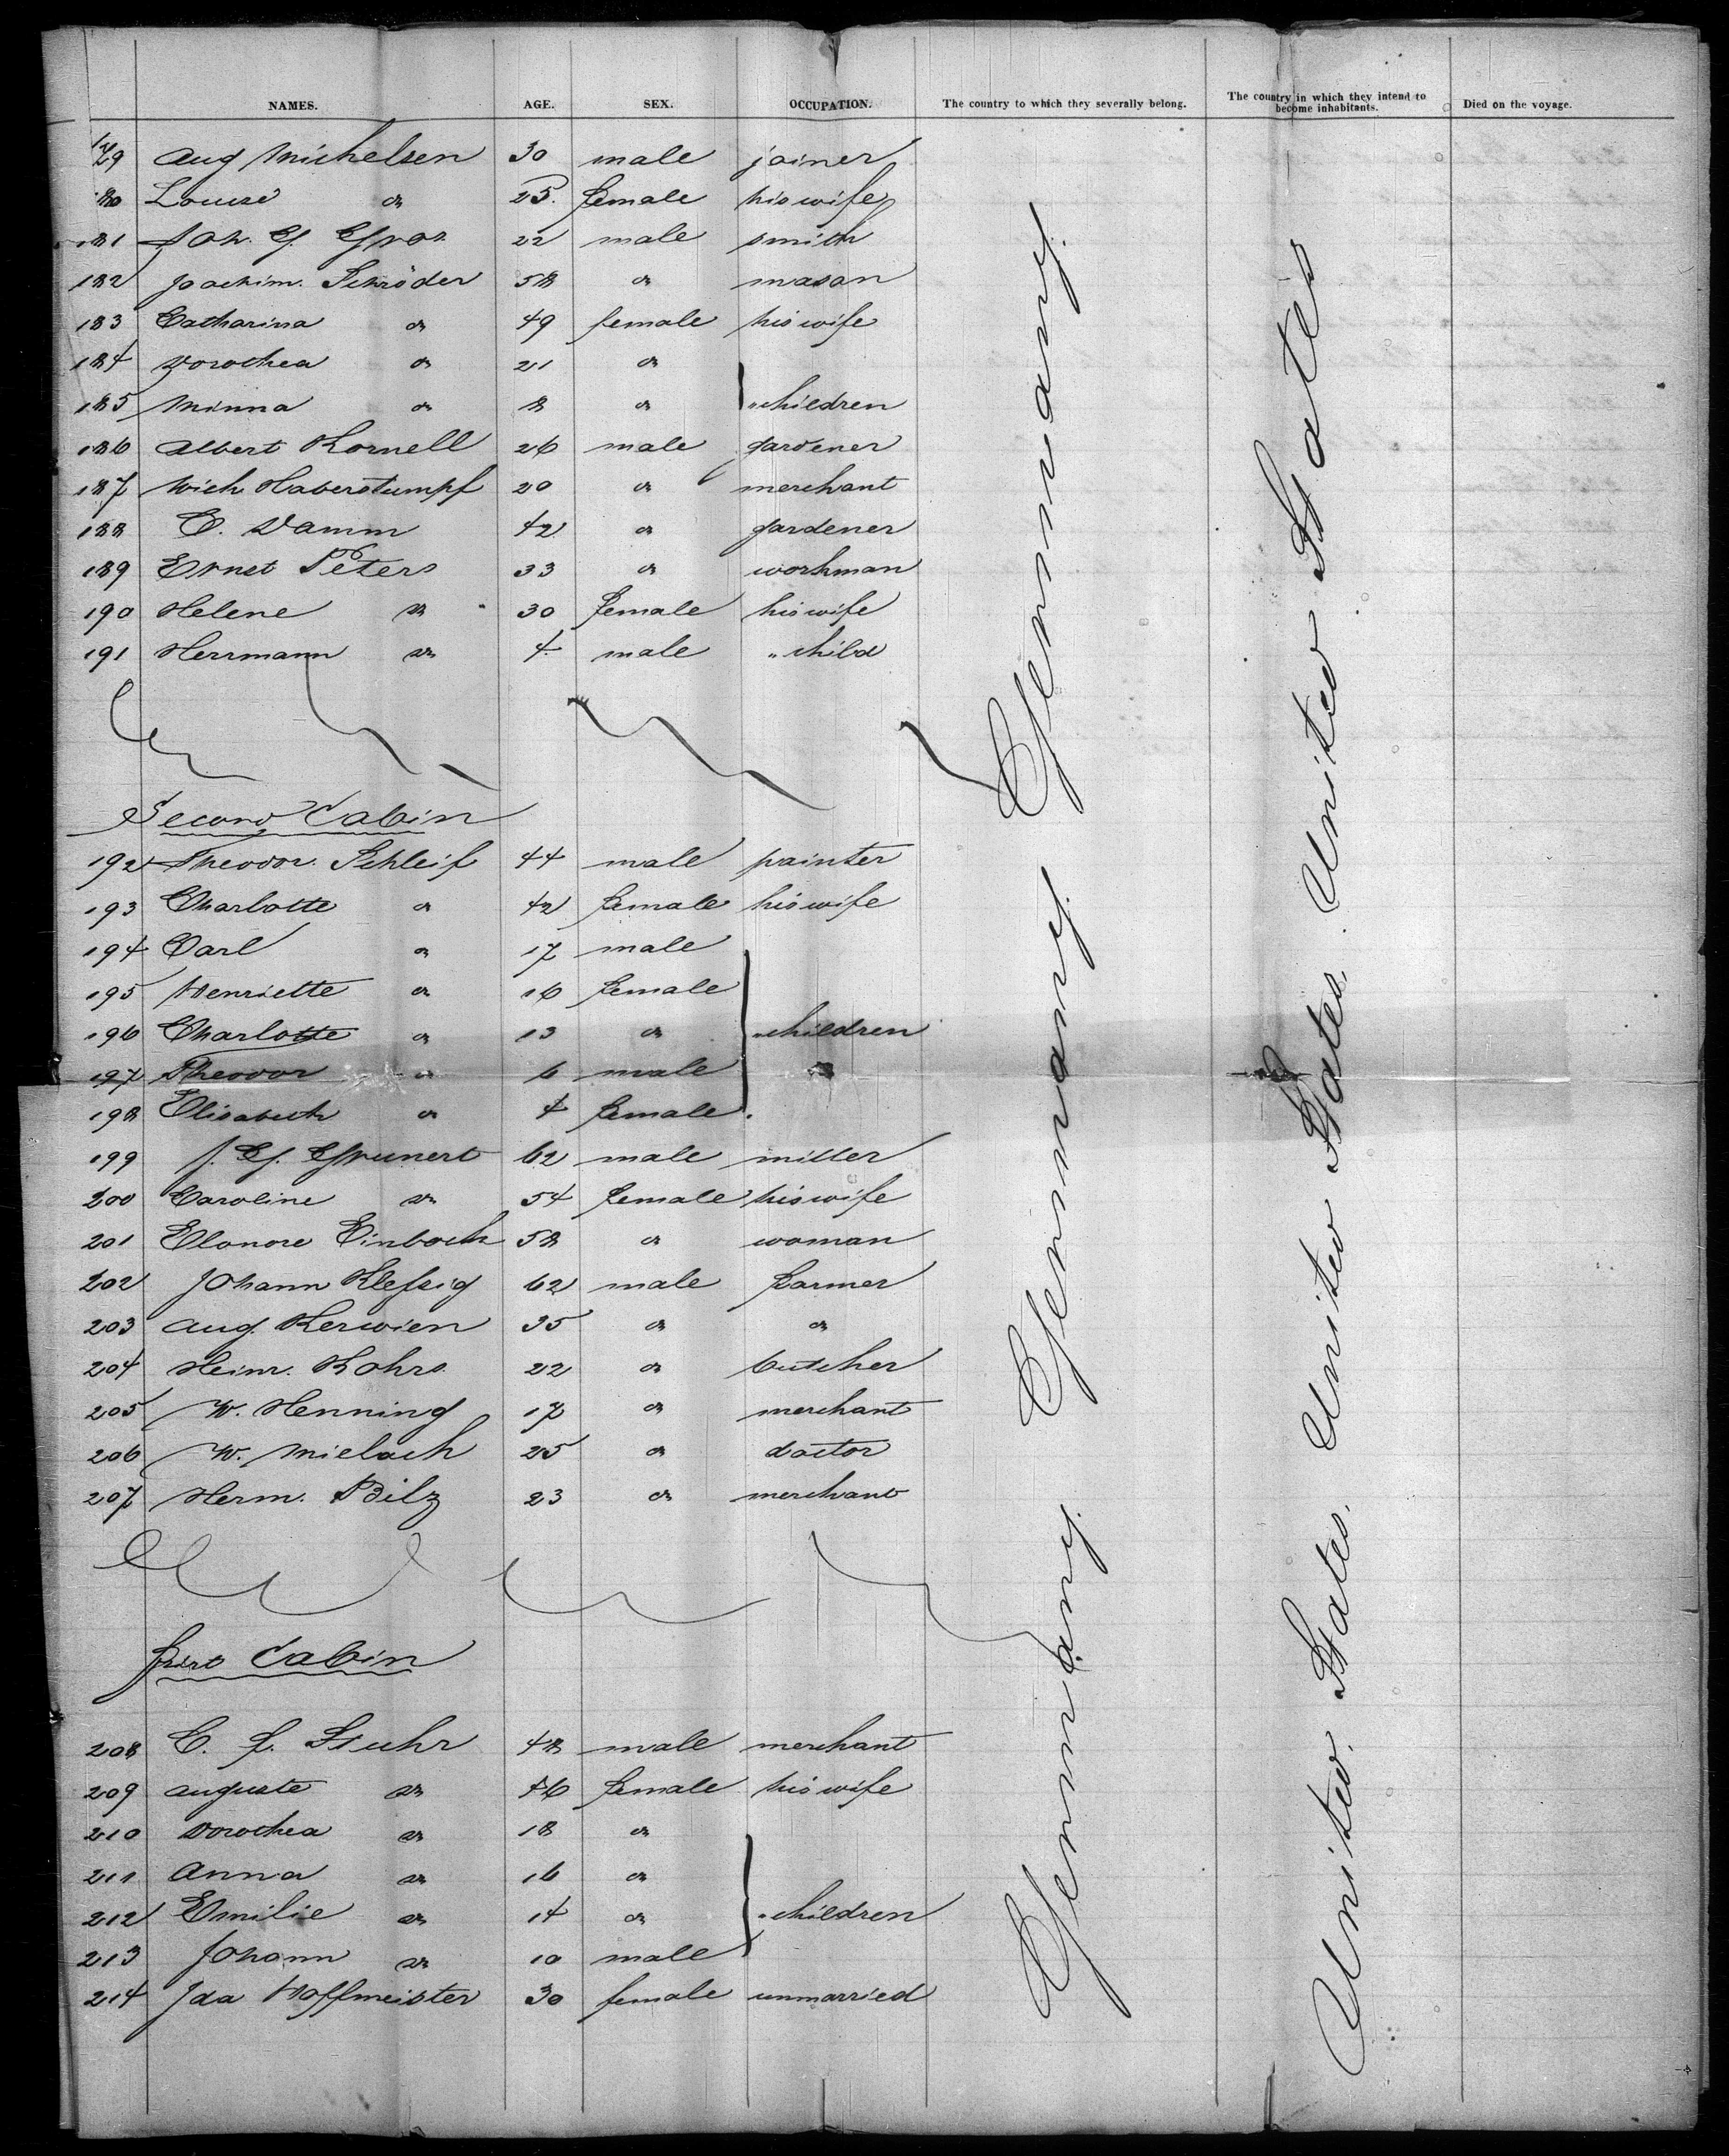 NAMES. AGE. SEX. OCCUPATION. The country to which they severally belong. The country in which they intend to become inhabitants. Died on the voyage.
179 Aug Michelsen 30 male joiner
180 Louise do 25. female his wife
181 Joh. G. Gros 22 male smith
182 Joachim. Schröder 58 do mason
183 Catharina do 49 female his wife
184 Dorothea do 21 do
185 Minna do 8 do " children
186 Albert Kornell 26 male gardener
187 Mich Haberstumpf 20 do merchant
188 C. Damm 42 do gardener
189 Ernst Peters 33 do workman
190 Helene do 30 female his wife
191 Herrmann do 4 male " child
Second Cabin
192 Theodor. Schleif 44 male painter
193 Charlotte do 42 female his wife
194 Carl do 17 male
195 Henriette do 16 female
196 Charlotte do 13 do " children
197 Theodor do 6 male
198 Elisabeth do 4 female
199 J. G. Grunert 62 male miller
200 Caroline do 54 female his wife
201 Elonore Einboch 58 do woman
202 Johann Klefsig 62 male farmer
203 Aug. Kerwien 35 do do
204 Heinr. Kohrs 22 do butcher
205 W. Henning 17 do merchant
206 W. Mielach 25 do doctor
207 Herm. Bilz 23 do merchant
first Cabin
208 C. F. Stuhr 48 male merchant
209 Auguste do 46 female his wife
210 Dorothea do 18 do
211 Anna do 16 do
212 Emilie do 14 do " children
213 Johann do 10 male
214 Ida Hoffmeister 30 female unmarried
Germany. Germany. Germany.
United States. United States. United States